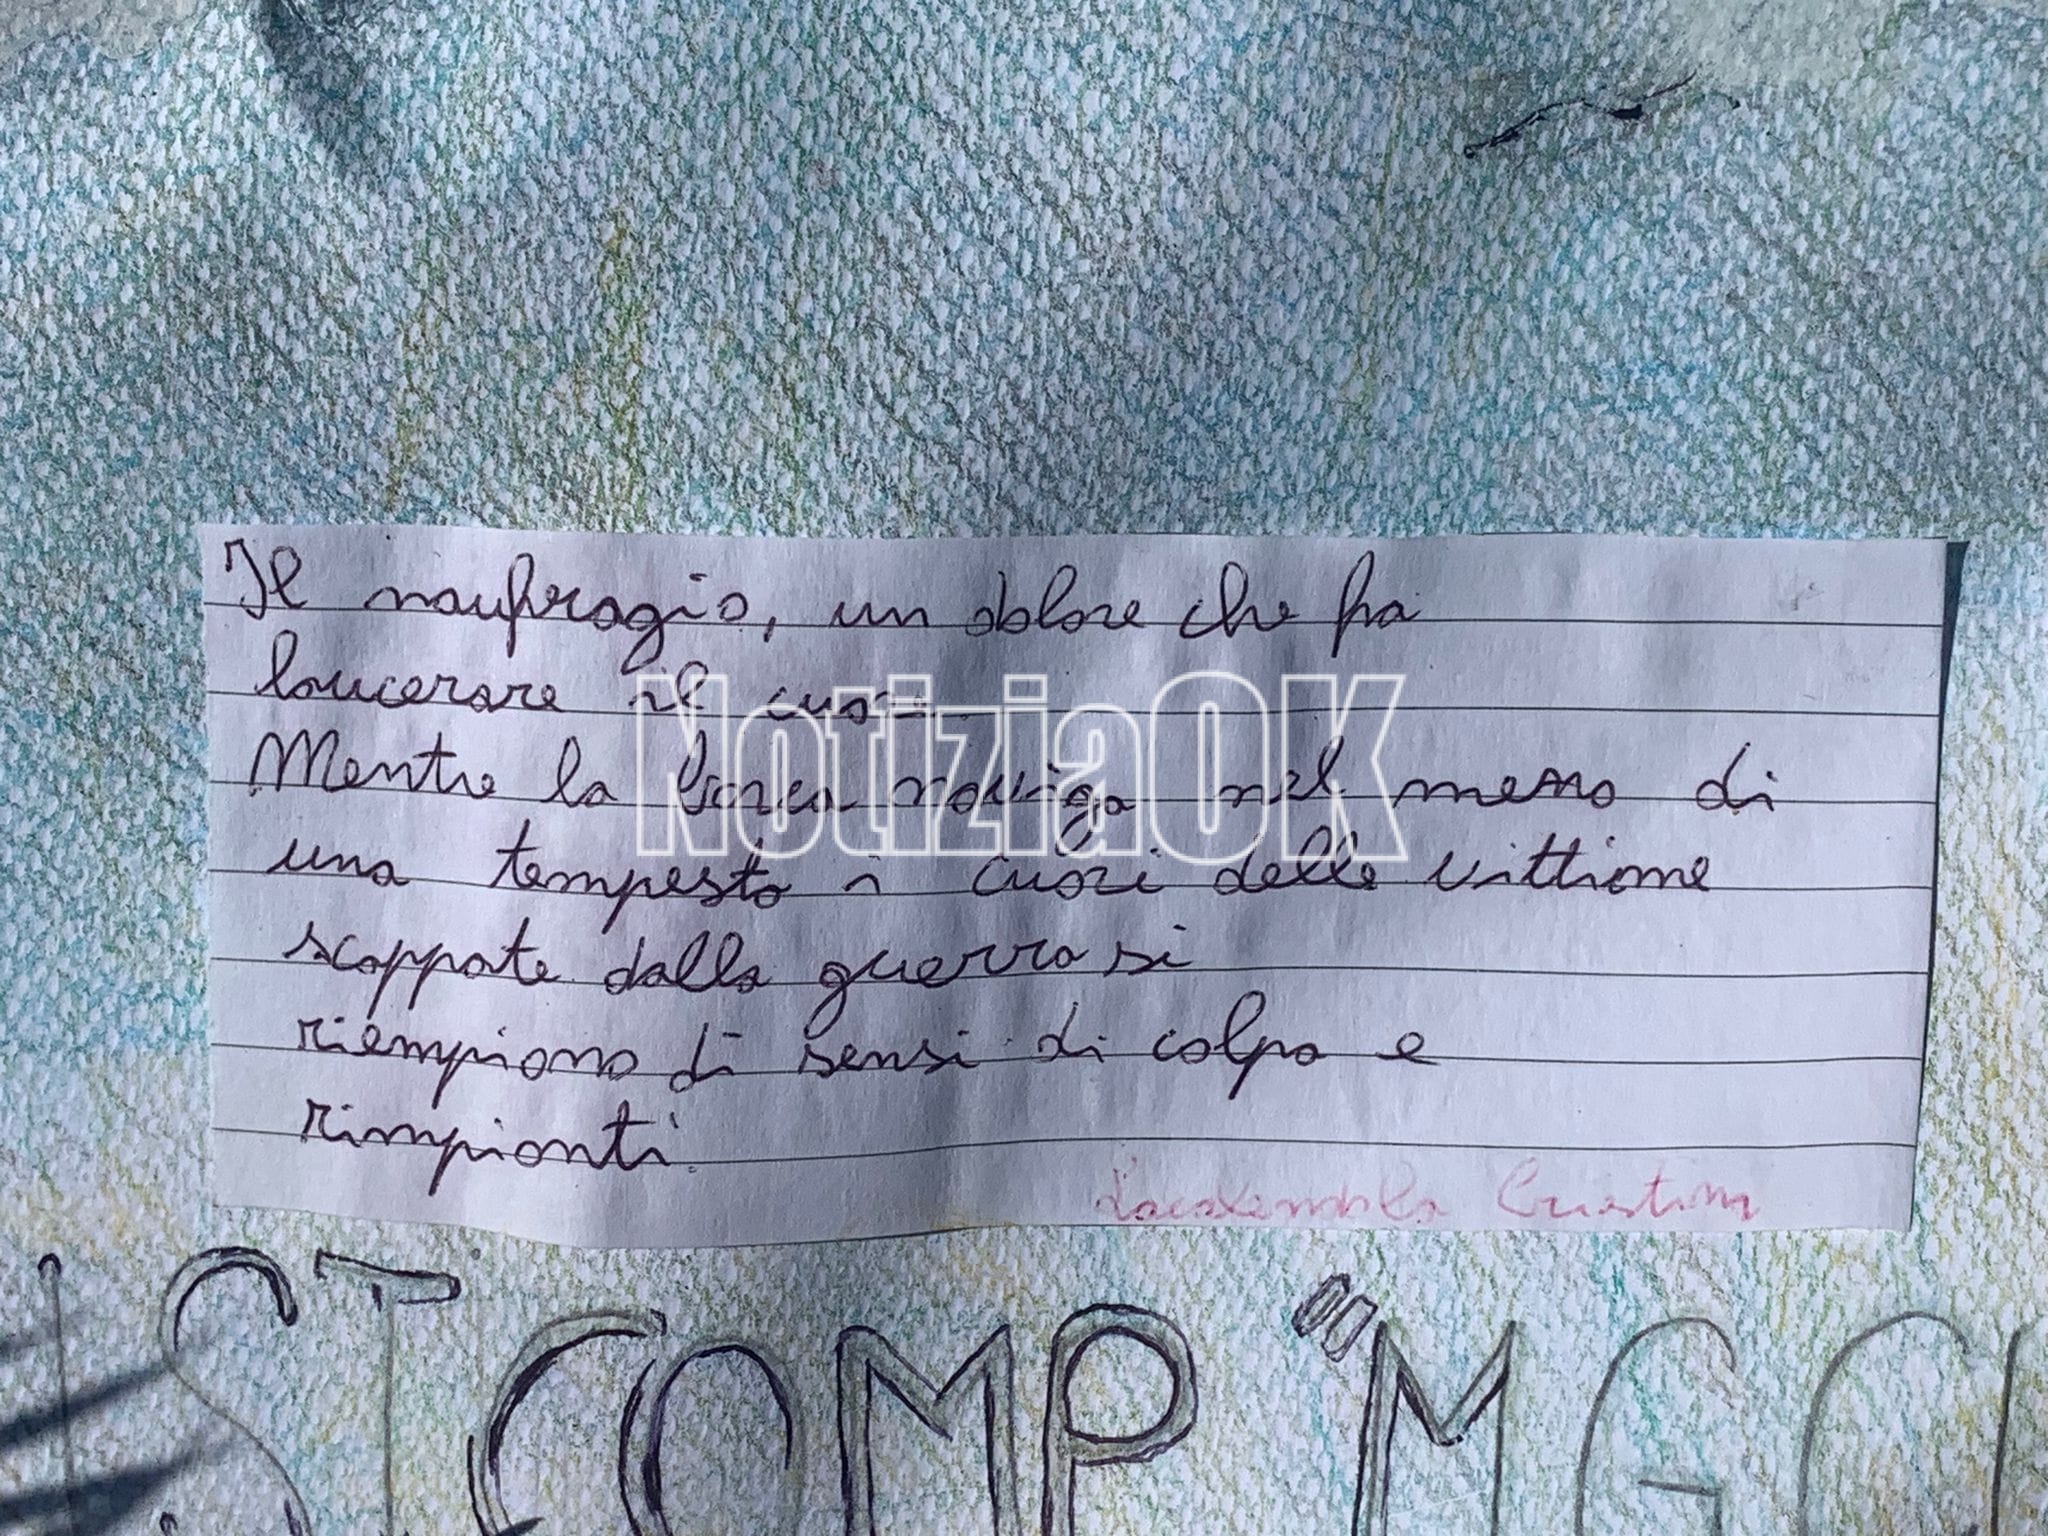 Il naufragio, un dolore che fa
laucerare il cuore.
Mentre la barca naviga nel mezzo di
una tempesta i cuori delle vittiome
scappate dalla guerra si
riempiono di sensi di colpa e
rimpianti.
Cristina
NotiziaOK
IST COMP "M G